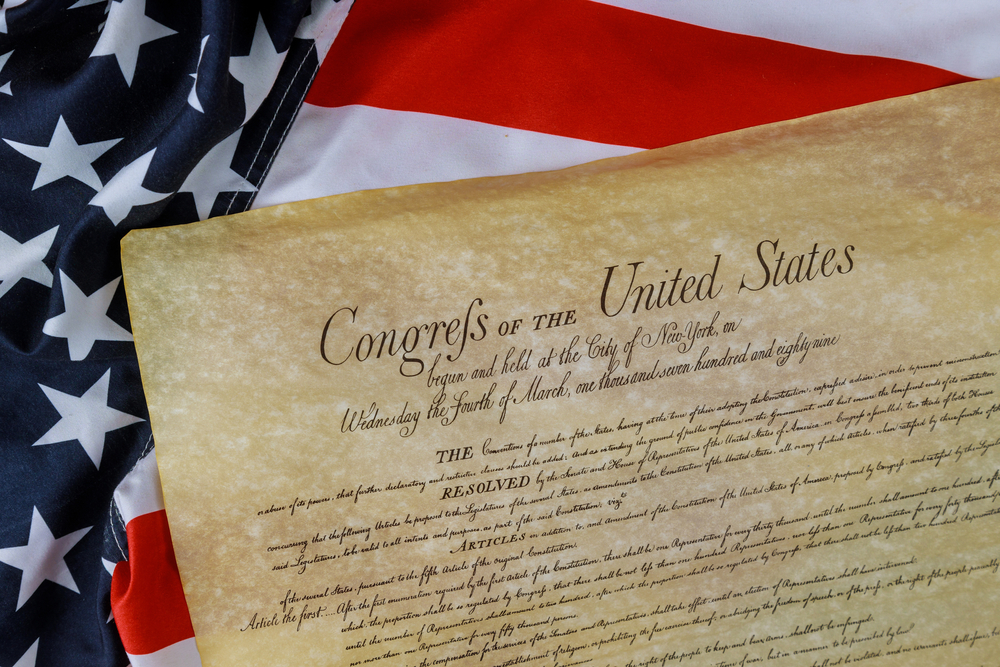 Congreſs OF THE United States
begun and held at the City of New-York, on
Wednesday the Fourth of March, one thousand seven hundred and eighty nine
THE Conventions of a number of the States, having at the time of their adopting the Constitution, expreſsed a desire, in order to prevent misconstruction
or abuse of its powers, that further declaratory and restrictive clauses should be added: And as extending the ground of public confidence in the Government, will best ensure the beneficent ends of its institution
RESOLVED by the Senate and House of Representatives of the United States of America, in Congreſs aſsembled, two thirds of both Houses
concurring, that the following Articles be proposed to the Legislatures of the several States, as amendments to the Constitution of the United States, all, or any of which Articles, when ratified by three fourths of the
said Legislatures, to be valid to all intents and purposes, as part of the said Constitution; viz.t
ARTICLES in addition to, and Amendment of the Constitution of the United States of America, proposed by Congreſs, and ratified by the
of the several States, pursuant to the fifth Article of the original Constitution.
Article the first.... After the first enumeration required by the first Article of the Constitution, there shall be one Representative for every thirty thousand, until the number shall amount to one hundred, after
which, the proportion shall be so regulated by Congreſs, that there shall be not leſs than one hundred Representatives, nor leſs than one Representative for every forty thousand
until the number of Representatives shall amount to two hundred, after which the proportion shall be so regulated by Congreſs, that there shall not be leſs than two hundred
nor more than one Representative for every fifty thousand persons.
the compensation for the services of the Senators and Representatives shall take effect, until an election of Representatives shall have intervened.
establishment of religion, or prohibiting the free exercise thereof; or abridging the freedom of speech, or of the preſs, or the right of the people
the right of the people to keep and bear arms, shall not be infringed.
time of war, but in a manner to be prescribed by law.
not be violated, and no Warrants shall